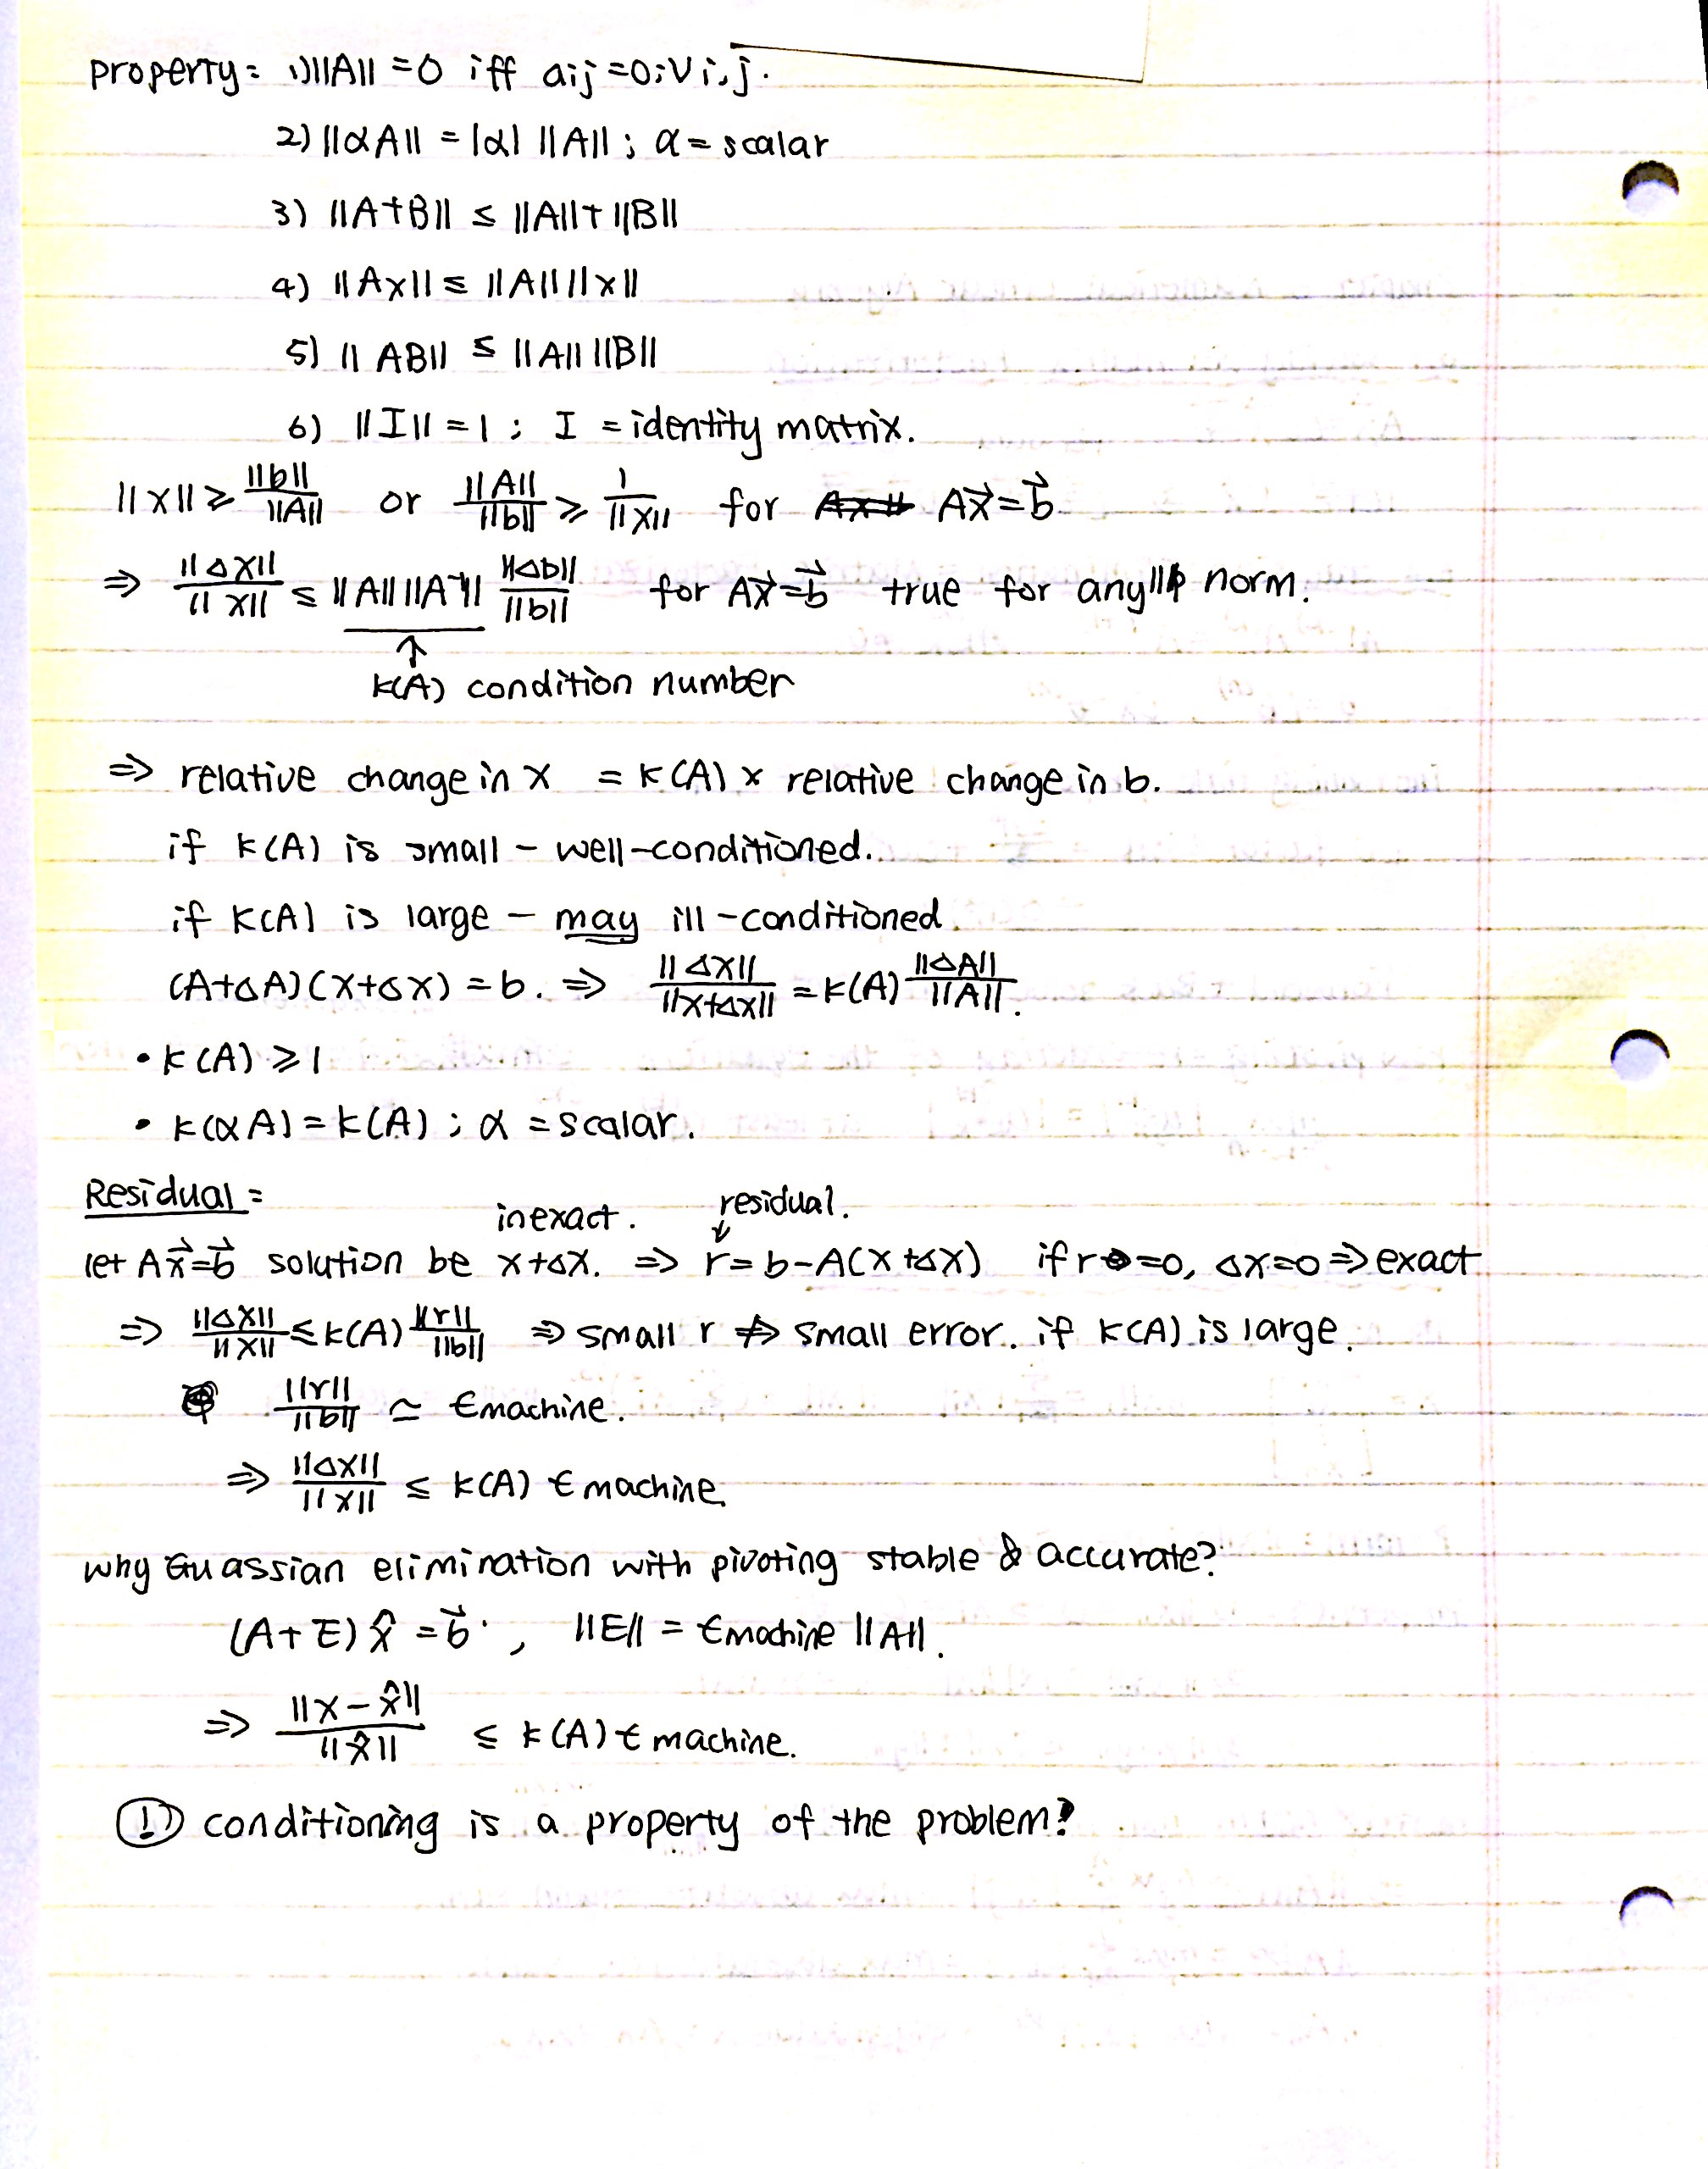 property: 1) ||A|| = 0 iff aij = 0; ∀ i, j.
2) ||αA|| = |α| ||A|| ; α = scalar
3) ||A+B|| ≤ ||A|| + ||B||
4) ||Ax|| ≤ ||A|| ||x||
5) ||AB|| ≤ ||A|| ||B||
6) ||I|| = 1 ; I = identity matrix.
||x|| ≥ ||b||/||A|| or ||A||/||b|| ≥ 1/||x|| for Ax⃗ = b⃗
⇒ ||Δx||/||x|| ≤ ||A|| ||A⁻¹|| ||Δb||/||b|| for Ax⃗ = b⃗ true for any norm.
↑
k(A) condition number
⇒ relative change in x = k(A) × relative change in b.
if k(A) is small - well-conditioned.
if k(A) is large - may ill-conditioned.
(A+ΔA)(x+Δx) = b. ⇒ ||Δx||/||x+Δx|| = k(A) ||ΔA||/||A||.
• k(A) ≥ 1
• k(αA) = k(A) ; α = scalar.
Residual:
inexact. residual.
let Ax⃗=b⃗ solution be x+Δx. ⇒ r = b-A(x+Δx) if r=0, Δx=0 ⇒ exact
⇒ ||Δx||/||x|| ≤ k(A) ||r||/||b|| ⇒ small r ⇏ small error. if k(A) is large.
||r||/||b|| ≃ ϵmachine.
⇒ ||Δx||/||x|| ≤ k(A) ϵmachine
why Guassian elimination with pivoting stable & accurate?
(A+E) x̂ = b⃗ , ||E|| = ϵmachine ||A||.
⇒ ||x-x̂||/||x̂|| ≤ k(A) ϵmachine.
(!) conditioning is a property of the problem?